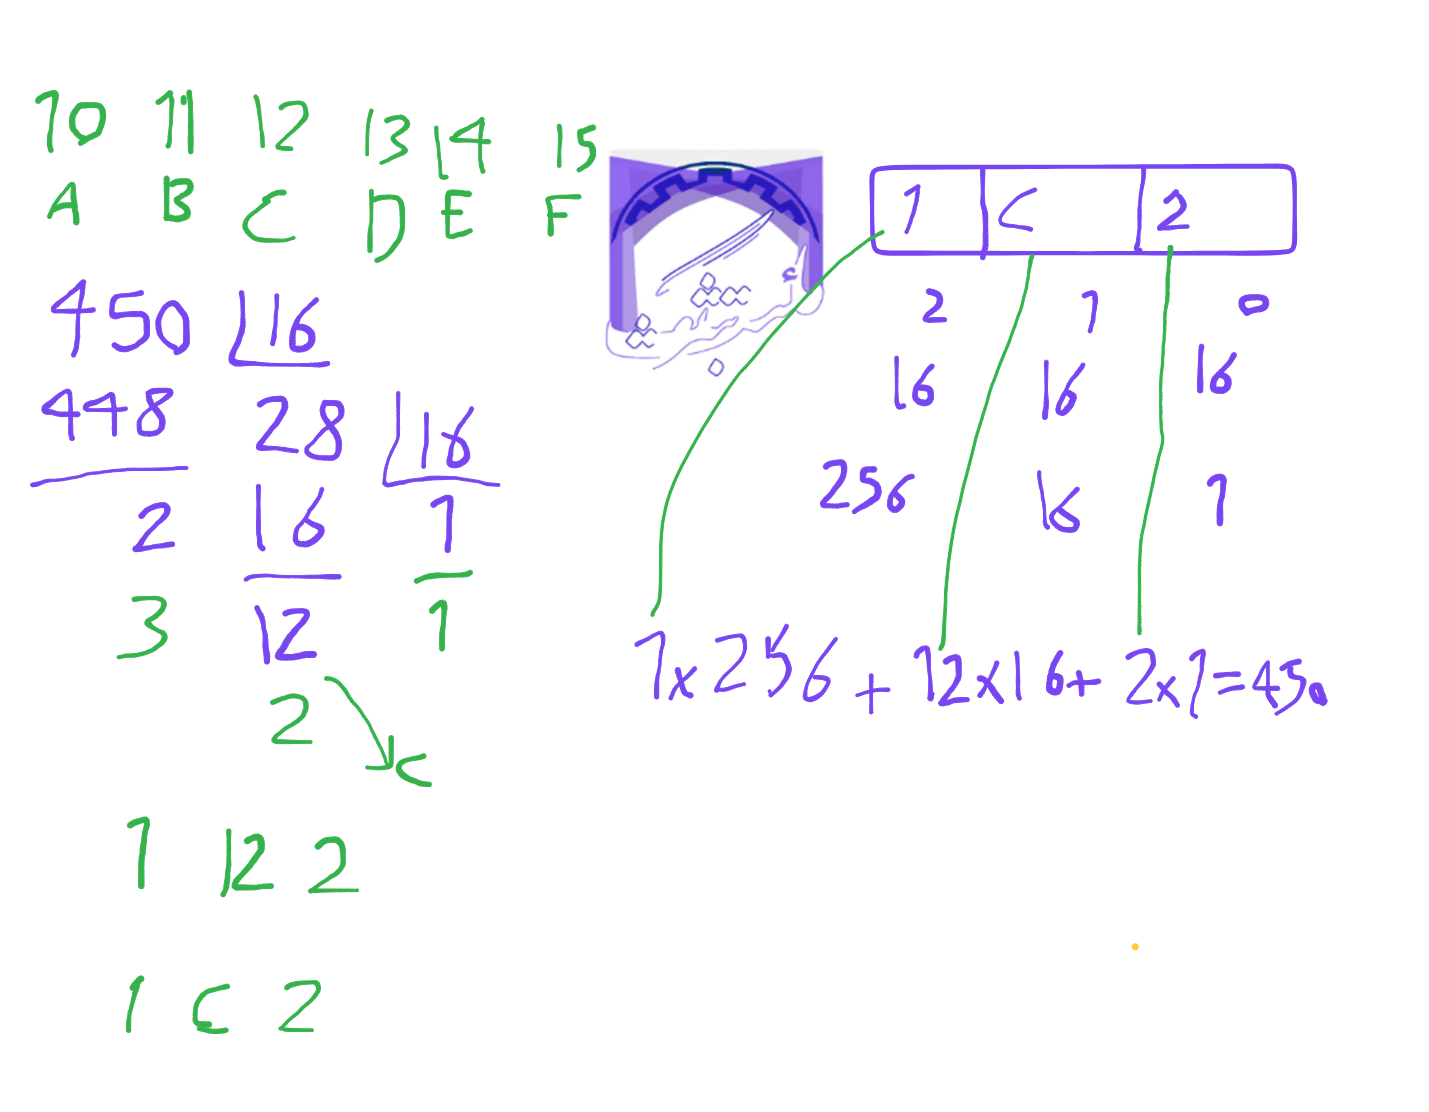 10 11 12 13 14 15
A B C D E F
450 16
448 28 16
2 16 1
3 12 1
2 C
1 12 2
1 C 2
1 C 2
2 1 0
16 16 16
256 16 1
1x256 + 12x16+ 2x1=450